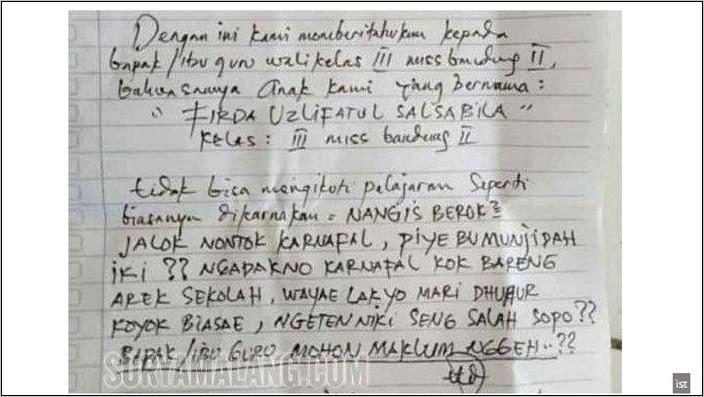 Dengan ini kami memberitahukan kepada
bapak/ibu guru wali kelas III miss bandung II,
bahwasanya anak kami yang bernama:
" FIRDA UZLIFATUL SALSABILA "
Kelas: III miss bandung II
tidak bisa mengikuti pelajaran seperti
biasanya dikarnakan = NANGIS BEROK²
JALOK NONTOK KARNAFAL, PIYE BU MUNJIDAH
iki ?? NGADAKNO KARNAFAL KOK BARENG
AREK SEKOLAH, WAYAE LAK YO MARI DHUHUR
KOYOK BIASAE, NGETEN NIKI SENG SALAH SOPO??
BAPAK/IBU GURU MOHON MAKLUM NGGEH..??
ttd
SURYAMALANG.COM
ist